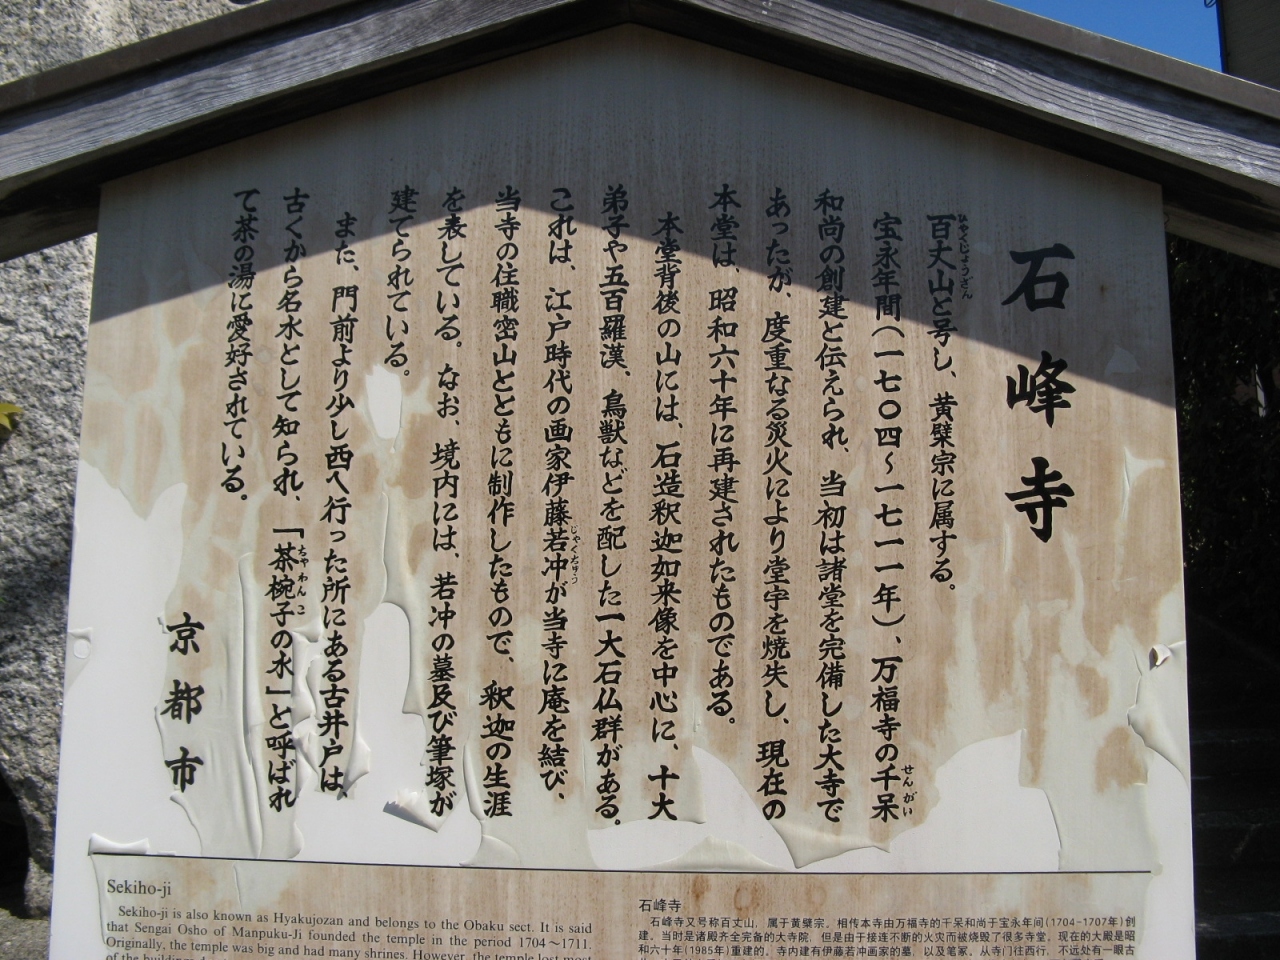 石峰寺
百丈山と号し、黄檗宗に属する。
宝永年間（一七〇四～一七一一年）、万福寺の千呆
和尚の創建と伝えられ、当初は諸堂を完備した大寺で
あったが、度重なる災火により堂宇を焼失し、現在の
本堂は、昭和六十年に再建されたものである。
本堂背後の山には、石造釈迦如来像を中心に、十大
弟子や五百羅漢、鳥獣などを配した一大石仏群がある。
これは、江戸時代の画家伊藤若冲が当寺に庵を結び、
当寺の住職密山とともに制作したもので、釈迦の生涯
を表している。なお、境内には、若冲の墓及び筆塚が
建てられている。
また、門前より少し西へ行った所にある古井戸は、
古くから名水として知られ、「茶椀子の水」と呼ばれ
て茶の湯に愛好されている。
京都市
Sekiho-ji
Sekiho-ji is also known as Hyakujozan and belongs to the Obaku sect. It is said
that Sengai Osho of Manpuku-Ji founded the temple in the period 1704～1711.
Originally, the temple was big and had many shrines. However, the temple lost most
石峰寺
石峰寺又号称百丈山，属于黄檗宗。相传本寺由万福寺的千呆和尚于宝永年间(1704-1707年)创
建。当时是诸殿齐全完备的大寺院，但是由于接连不断的火灾而被烧毁了很多寺堂。现在的大殿是昭
和六十年(1985年)重建的。寺内建有伊藤若冲画家的墓，以及笔冢。从寺门往西行，不远处有一眼古